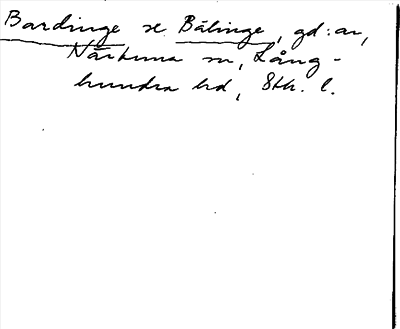 Bardinge se Bälinge, gd:ar,
Närtuna sn, Lång-
hundra hd, Sth. l.